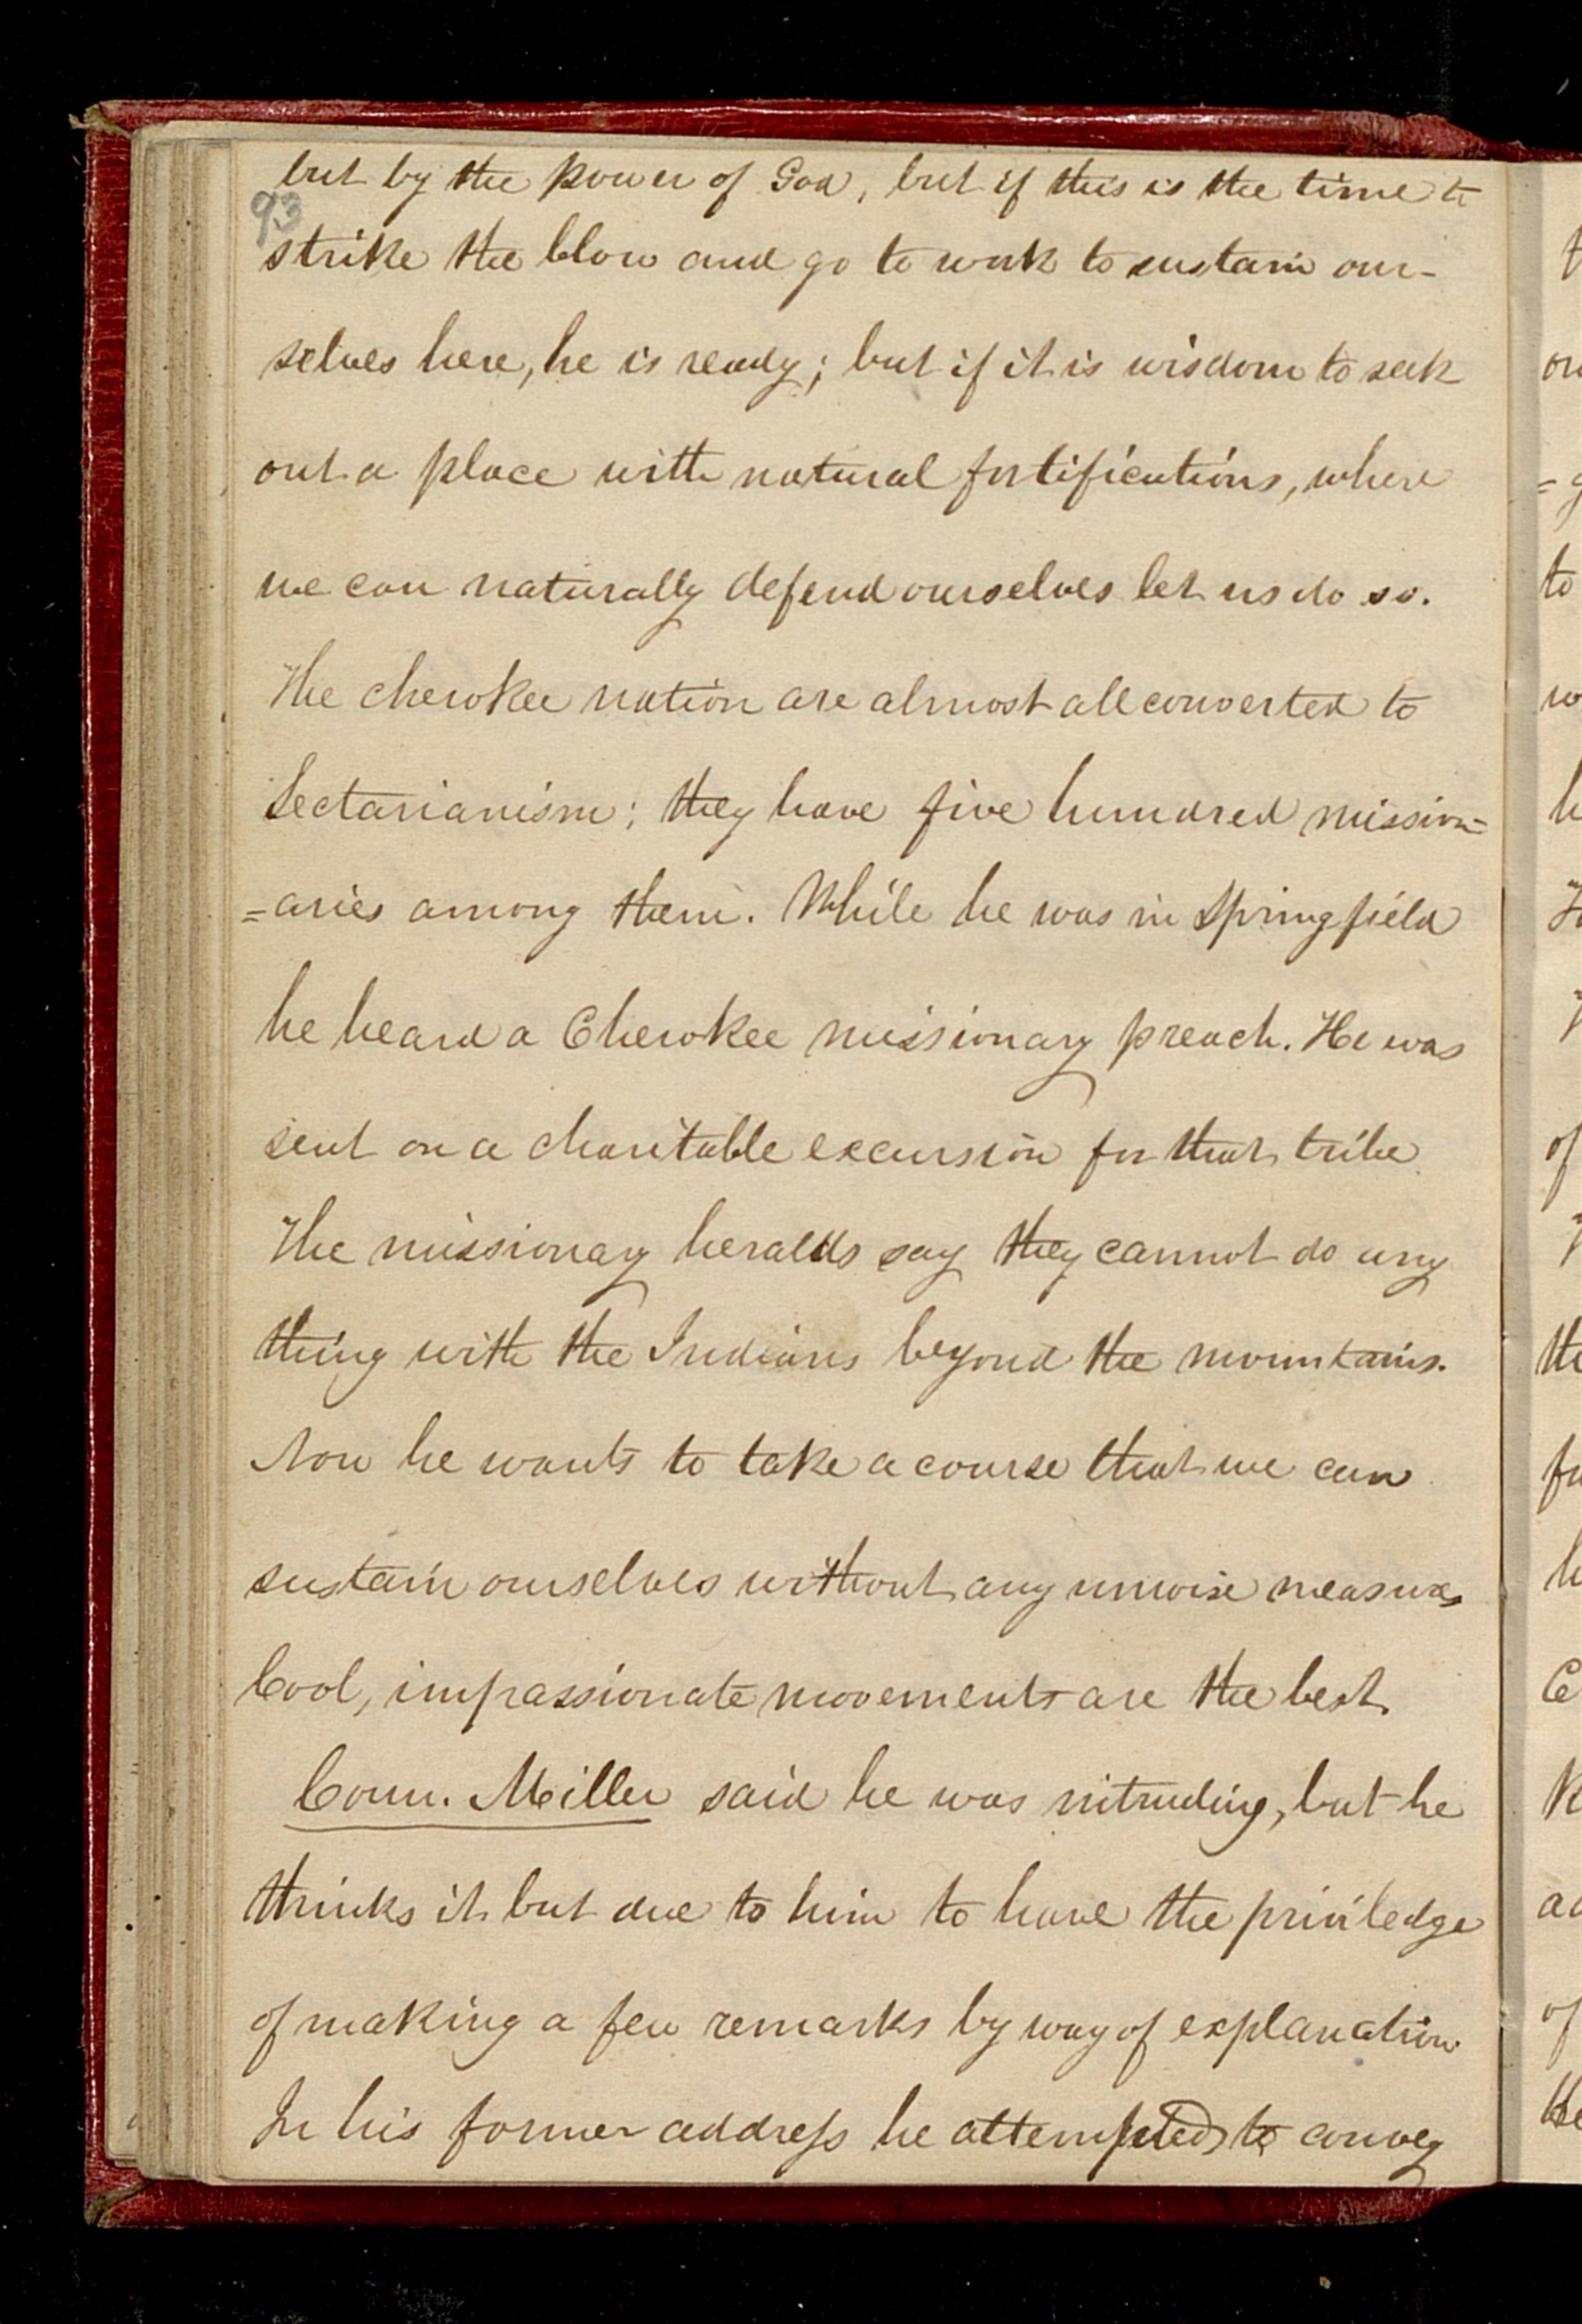 but by the power of God, but if this is the time to
93
strike the blow and go to work to sustain our-
selves here, he is ready; but if it is wisdom to seek
out a place with natural fortifications, where
we can naturally defend ourselves let us do so.
The cherokee nation are almost all converted to
Sectarianism; they have five hundred mission=
=aries among them. While he was in Springfield
he heard a Cherokee missionary preach. He was
sent on a charitable excursion for that tribe
The missionary heralds say they cannot do any
thing with the Indians beyond the mountains.
Now he wants to take a course that we can
sustain ourselves without any unwise measures
Cool, impassionate movements are the best.
Coun. Miller said he was intruding, but he
thinks it but due to him to have the priviledge
of making a few remarks by way of explanation
In his former address he attempted to convey